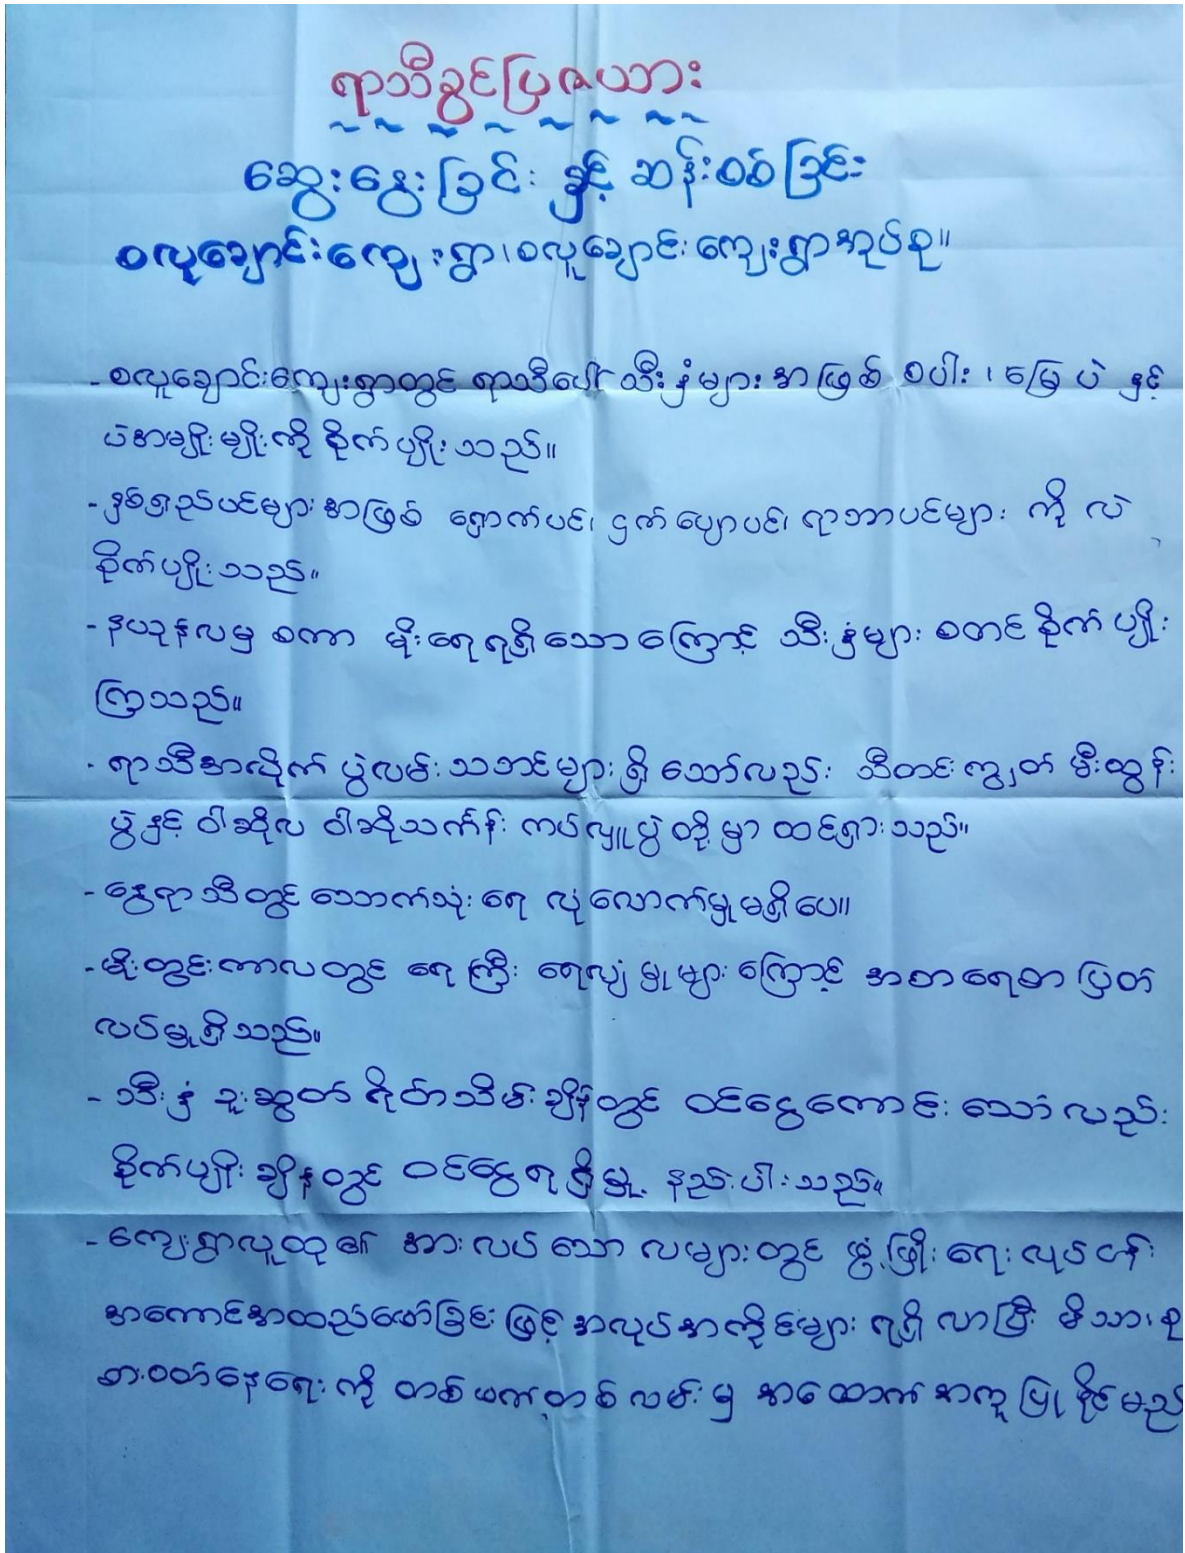 ရာသီခွင်ပြဇယား
ဆွေးနွေးခြင်း နှင့် ဆန်းစစ်ခြင်း
စလူချောင်းကျေးရွာ၊စလူချောင်းကျေးရွာအုပ်စု။
- စလူချောင်းကျေးရွာတွင် ရာသီပေါ် သီးနှံများ အဖြစ် စပါး ၊ မြေပဲ နှင့်
ပဲအမျိုးမျိုးကို စိုက်ပျိုးသည်။
- နှစ်ရှည်ပင်များအဖြစ် ရှောက်ပင်၊ ငှက်ပျောပင်၊ ရာဘာပင်များ ကို လဲ
စိုက်ပျိုးသည်။
- နယုန်လမှ စကာ မိုးရေရရှိသောကြောင့် သီးနှံများ စတင်စိုက်ပျိုး
ကြသည်။
- ရာသီအလိုက် ပွဲလမ်းသဘင်များရှိသော်လည်း သီတင်းကျွတ် မီးထွန်း
ပွဲနှင့် ဝါဆိုလ ဝါဆိုသင်္ကန်း ကပ်လှူပွဲတို့မှာ ထင်ရှားသည်။
- နွေရာသီတွင် သောက်သုံးရေ လုံလောက်မှုမရှိပေ။
- မိုးတွင်းကာလတွင် ရေကြီး ရေလျှံမှုများကြောင့် အစာရေစာ ပြတ်
လပ်မှုရှိသည်။
- သီးနှံ ခူးဆွတ် ရိတ်သိမ်းချိန်တွင် ဝင်ငွေကောင်းသော်လည်း
စိုက်ပျိုးချိန်တွင် ဝင်ငွေရရှိမှု နည်းပါးသည်။
- ကျေးရွာလူထု၏ အားလပ်သော လများတွင် ဖွံ့ဖြိုးရေးလုပ်ငန်း
အကောင်အထည်ဖော်ခြင်းဖြင့် အလုပ်အကိုင်များ ရရှိလာပြီး မိသားစု
စားဝတ်နေရေးကို တစ်ဖက်တစ်လမ်းမှ အထောက်အကူပြုနိုင်မည်